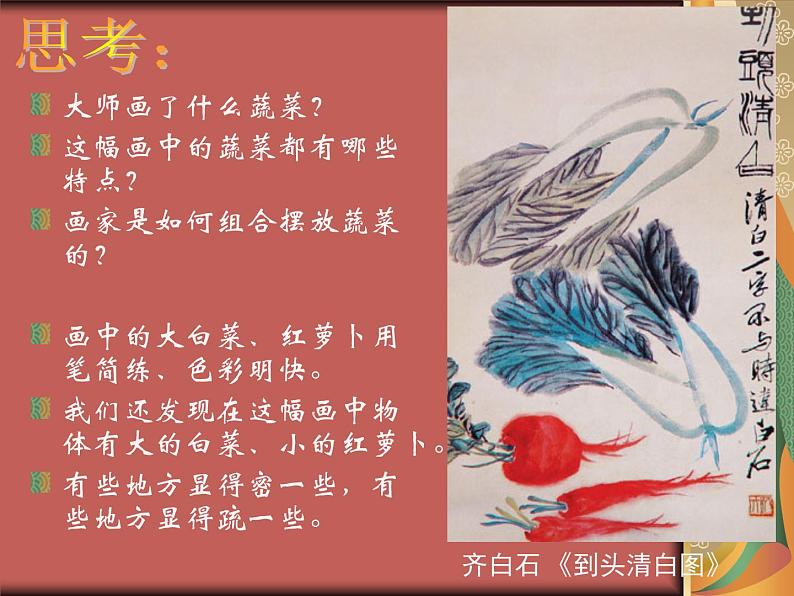 思考：
大师画了什么蔬菜？
这幅画中的蔬菜都有哪些
特点？
画家是如何组合摆放蔬菜
的？
画中的大白菜、红萝卜用
笔简练、色彩明快。
我们还发现在这幅画中物
体有大的白菜、小的红萝卜。
有些地方显得密一些，有
些地方显得疏一些。
到頭清白
清白二字不与時違白石
齐白石《到头清白图》